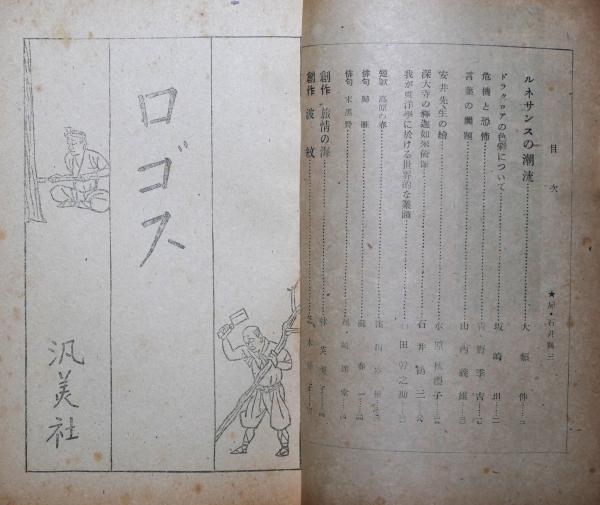 目次
★扉・石井鶴三
ルネサンスの潮流 大類伸
ドラクロアの色彩について 坂崎坦
危機と恐怖 青野季吉
言葉の問題 山内義雄
安井先生の繪 水原秋櫻子
深大寺の釋迦如来倚像 石井鶴三
我が東洋學に於ける世界的な業蹟 石田幹之助
短歌 高原の春
俳句 歸雁 春一
俳句 末黒野
創作 旅情の海 子
創作 波紋 木 子
ロゴス
汎美社